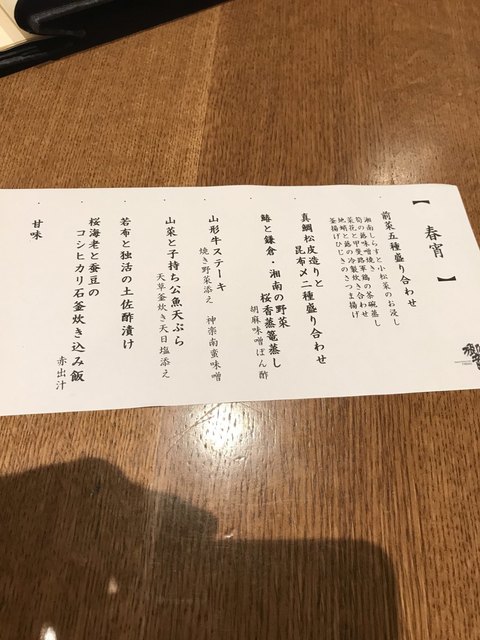 【 春宵 】
前菜五種盛り合わせ
湘南しらすと小松菜のお浸し
筍の蕗味噌焼き
軍鶏の茶碗蒸し
菜花と甲
の冷製炊き合わせ
地蛸と蕗の
さつま揚げ
釜揚げひじきの
真鯛松皮造りと
昆布〆二種盛り合わせ
鰆と鎌倉・湘南の野菜
桜香蒸篭蒸し
胡麻味噌ぽん酢
山形牛ステーキ
焼き野菜添え 神楽南蛮味噌
山菜と子持ち公魚天ぷら
天草釜炊き天日塩添え
若布と独活の土佐酢漬け
桜海老と蚕豆の
コシヒカリ石釜炊き込み飯
赤出汁
甘味